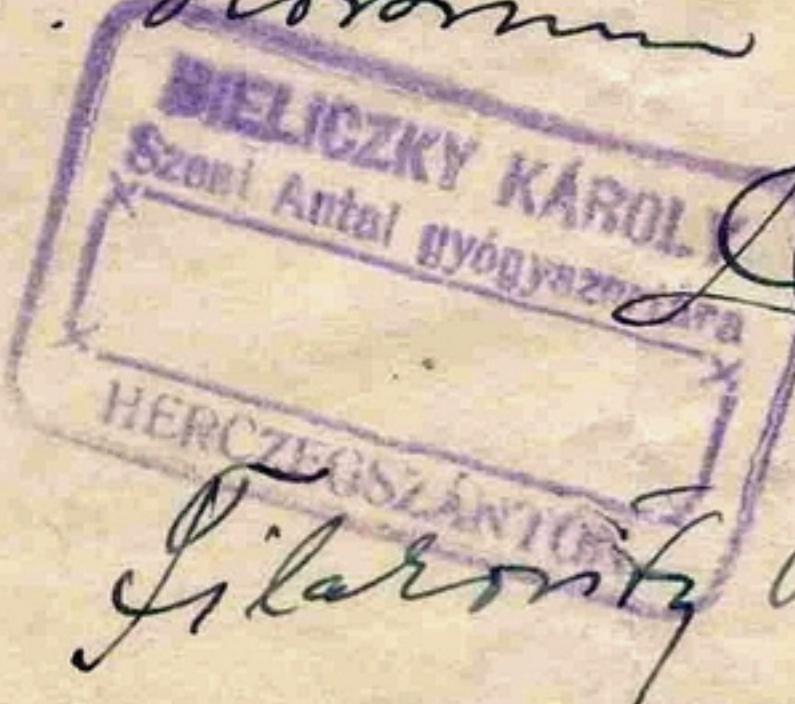 BIELICZKY KÁROLY
Szent Antal gyógyszertára
HERCZEGSZÁNTÓ
Filakovity